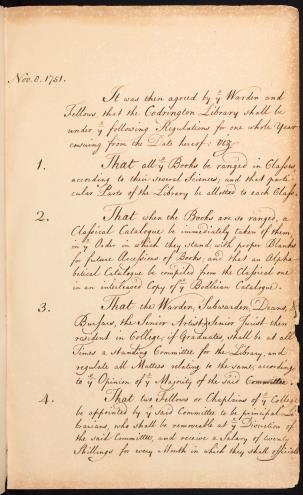 Nov. 8. 1751.
It was then agreed by yᵉ Warden and
Fellows, that the Codrington Library shall be
under yᵉ following Regulations for one whole Year
ensuing from the Date hereof: viz
1. That all yᵉ Books be ranged in Classes
according to their several Sciences; and that parti-
cular Parts of the Library be allotted to each Class.
2. That when the Books are so ranged, a
Classical Catalogue be immediately taken of them
in yᵉ Order in which they stand, with proper Blanks
for future Accessions of Books; and that an Alpha-
betical Catalogue be compiled from the Classical one
in an interleaved Copy of yᵉ Bodleian Catalogue.
3. That the Warden, Subwarden, Deans, &
Bursars, the Senior Artist & Senior Jurist then
resident in College, if Graduates, shall be at all
Times a standing Committee for the Library, and
regulate all Matters relating to the same, according
to yᵉ Opinion of yᵉ Majority of the said Committee.
4. That two Fellows or Chaplains of yᵉ College
be appointed by yᵉ said Committee to be principal Li-
brarians, who shall be removeable at yᵉ Discretion of
the said Committee, and receive a Salary of twenty
Shillings for every Month in which they shall officiate